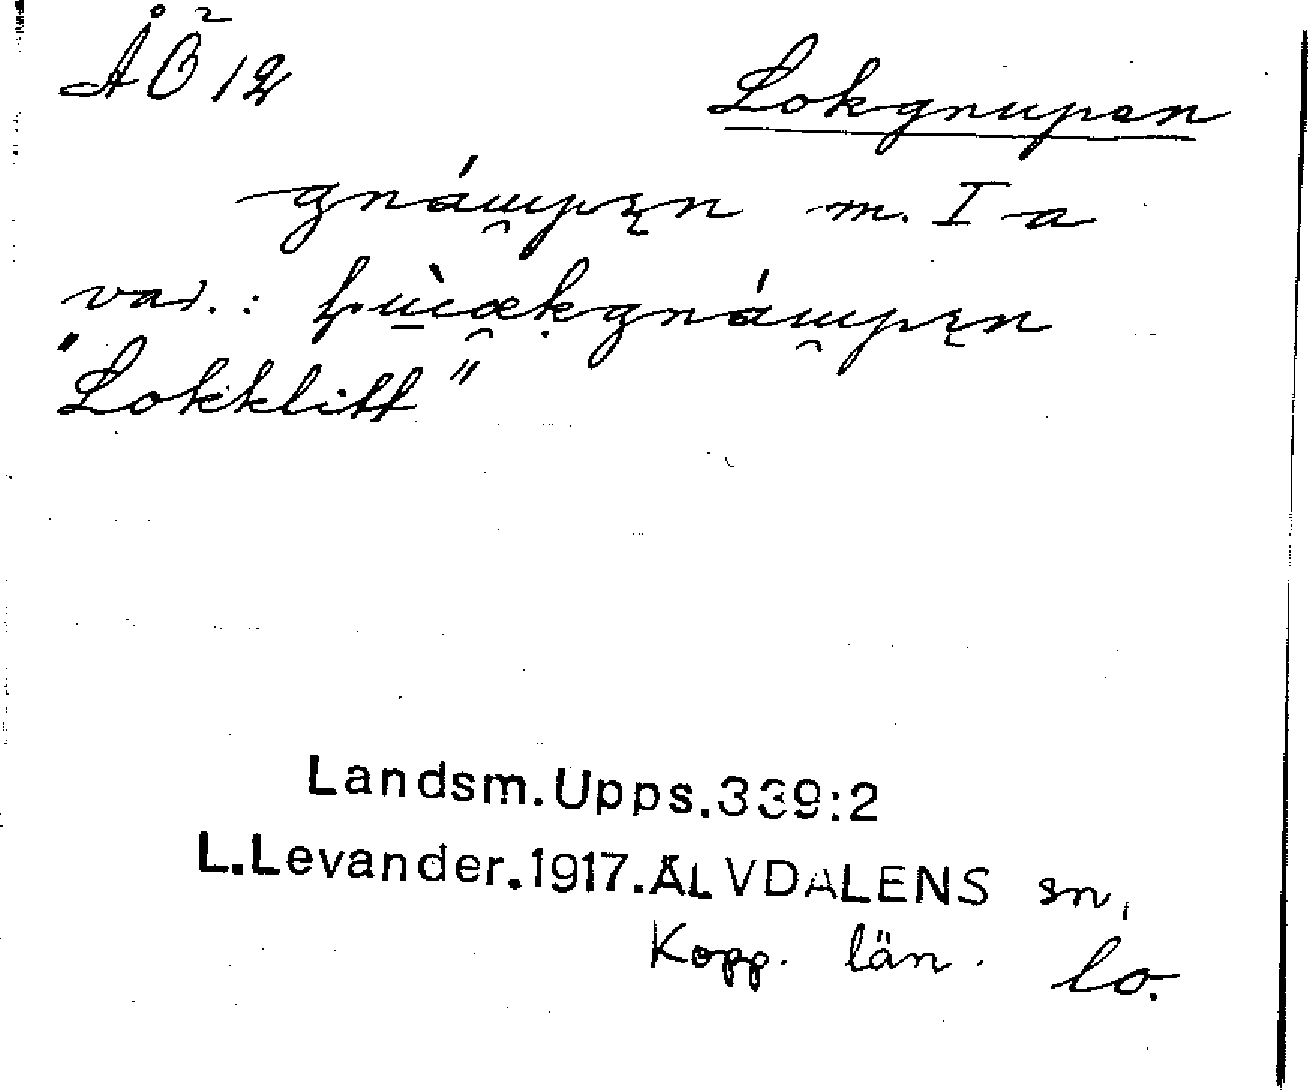 ÅÖ 12
Lokgnupen
gnáɯpęn m. I a
var.: ɫù̱œkgnáɯpęn
"Lokklitt"
Landsm.Upps.339:2
L.Levander.1917.ÄLVDALENS sn.
Kopp. län. lo.